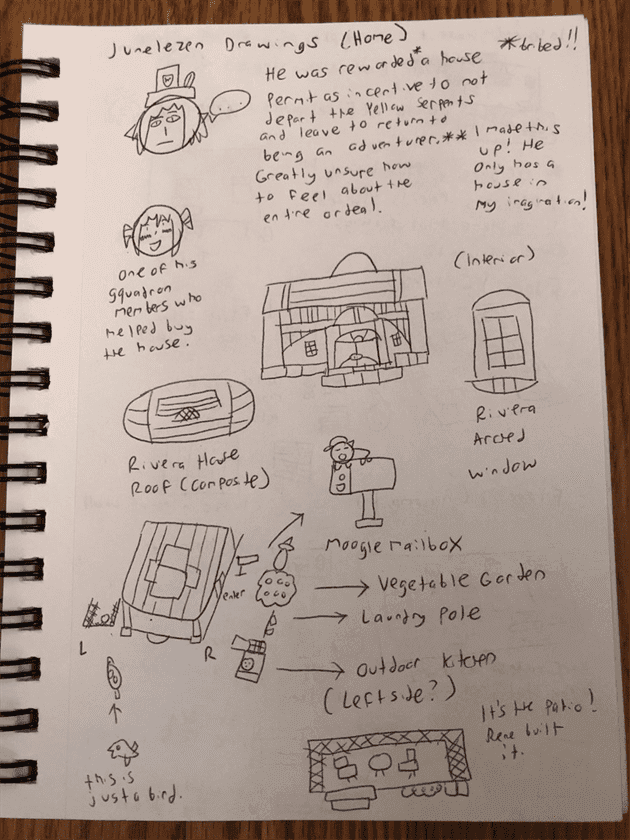 Junelezen Drawings (Home)
*bribed!!
He was rewarded* a house
permit as incentive to not
depart the Yellow Serpents
and leave to return to
being an adventurer.**
Greatly unsure how
to feel about the
entire ordeal.
I made this
up! He
only has a
house in
my imagination!
...
One of his
squadron
members who
helped buy
the house.
(Interior)
Rivera
Arched
window
Rivera House
Roof (Composite)
Moogle mailbox
enter
Vegetable Garden
Laundry Pole
L
R
Outdoor Kitchen
(Left side?)
It's the patio!
Rene built
it.
this is
just a bird.